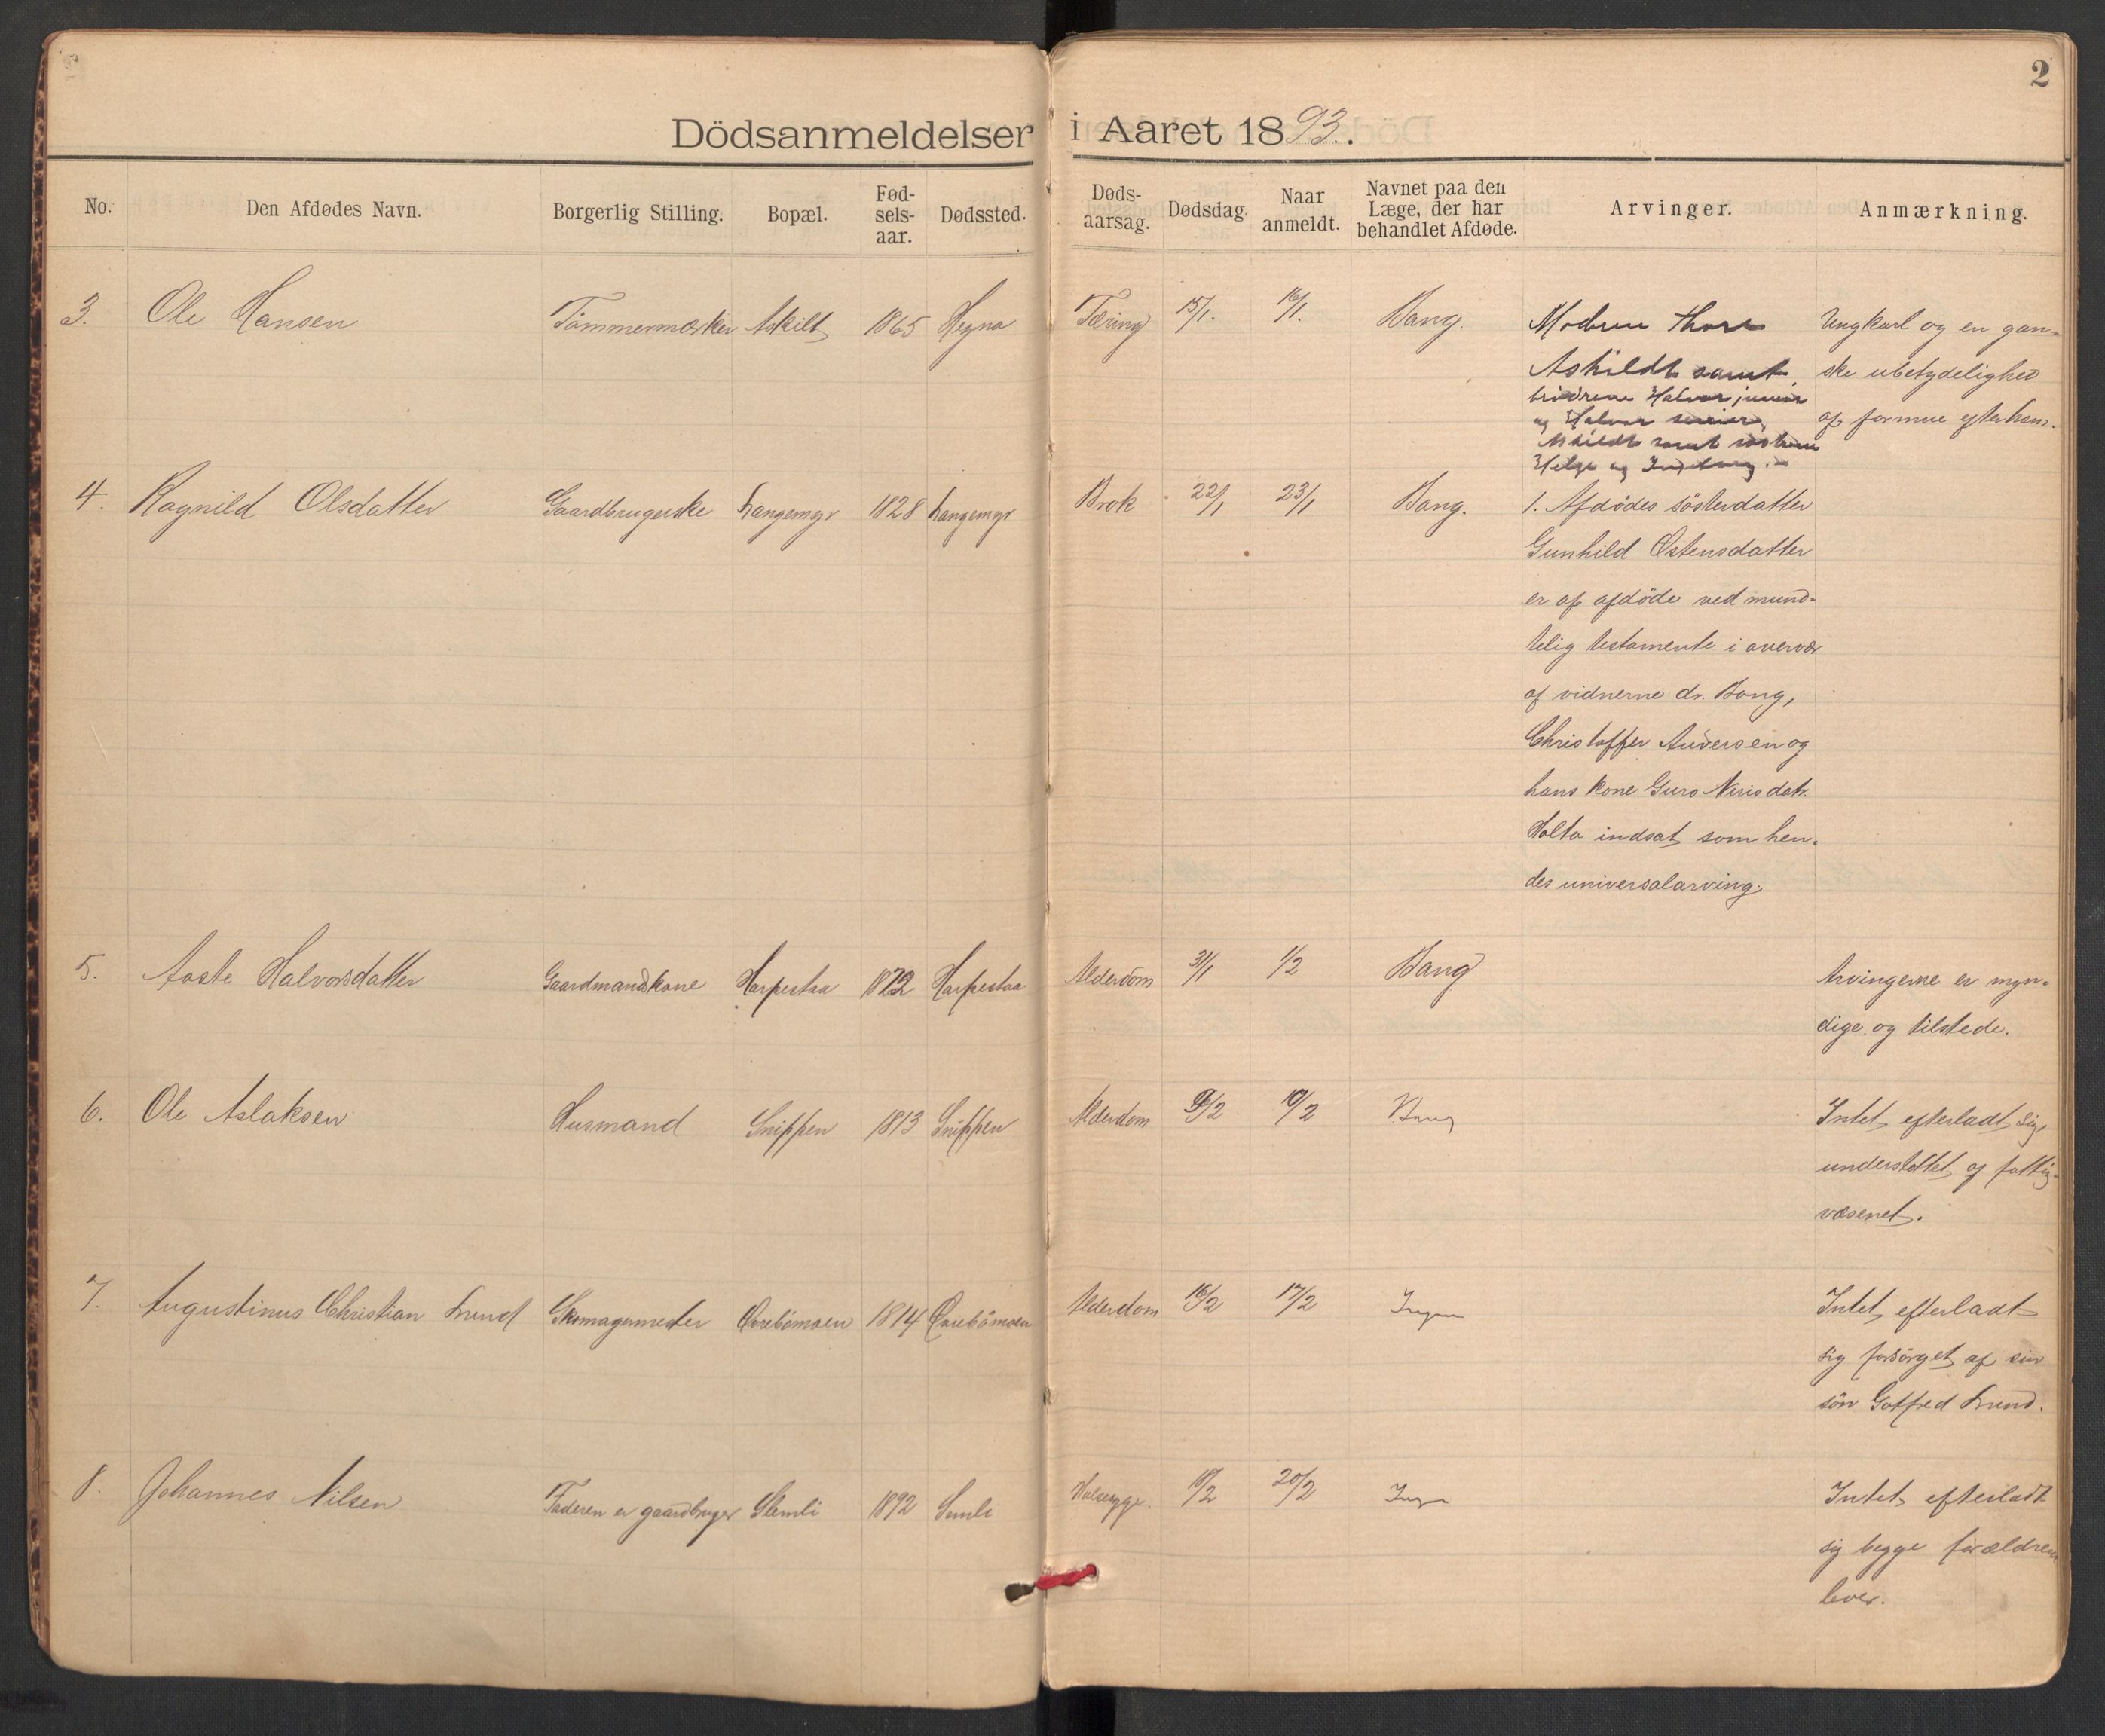 2
Dödsanmeldelser i Aaret 1893.
No. Den Afdødes Navn. Borgerlig Stilling. Bopæl. Fød-sels-aar. Dødssted. Døds-aarsag. Dødsdag. Naar anmeldt. Navnet paa den Læge, der har behandlet Afdøde. Arvinger. Anmærkning.
3. Ole Hansen Tømmermærker Askilt 1865 Hegna Tæring 15/1. 16/1. Bang. Moderen Thore Ungkarl og en gan-
Askildt samt ske ubetydelighed
brødrene Halvor junior
og Halvor senior af formue efter ham.
Askildt samt søstrene
Helge og Ingeborg.
4. Ragnild Olsdatter Gaardbrugerske Langemyr 1828 Langemyr Brok 22/1 23/1 Bang. 1. Afdødes søsterdatter
Gunhild Østensdatter
er af afdøde ved mund-
telig testamente i overvær
af vidnerne dr. Bang,
Christoffer Andersen og
hans kone Guro Nirisdat.
Holta indsat som hen-
des universalarving.
5. Aaste Halvorsdatter Gaardmandskone Harpestaa Harpestaa Alderdom 31/1 1/2 Bang Arvingerne er myn-
dige og tilstede.
6. Ole Aslaksen Husmand Snippen 1813 Snippen Alderdom 9/2 10/2 Bang Intet efterladt sig,
understøttet af fattig-
væsenet.
7. Augustinus Christian Lund Skomagermester Ovrebømoen 1814 Ovrebømoen Alderdom 16/2 17/2 Ingen Intet efterladt
sig forsørget af sin
søn Gotfred Lund.
8. Johannes Nilsen Faderen er gaardbruger Slemli 1892 Semli Halssyge. 18/2 20/2 Ingen Intet efterladt
sig begge forældrene
lever.